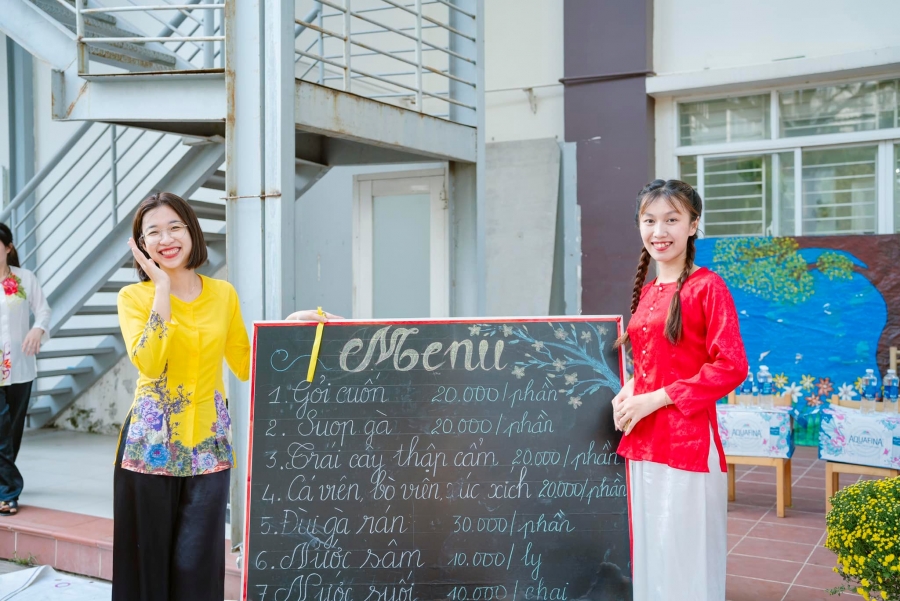 Menu
1. Gỏi cuốn 20.000/phần
2. Suop gà 20.000/phần
3. Trái cây thập cẩm 20.000/phần
4. Cá viên, bò viên, xúc xích 20.000/phần
5. Đùi gà rán 30.000/phần
6. Nước sâm 10.000/ly
7. Nước suối 10.000/chai
AQUAFINA
AQUAFINA